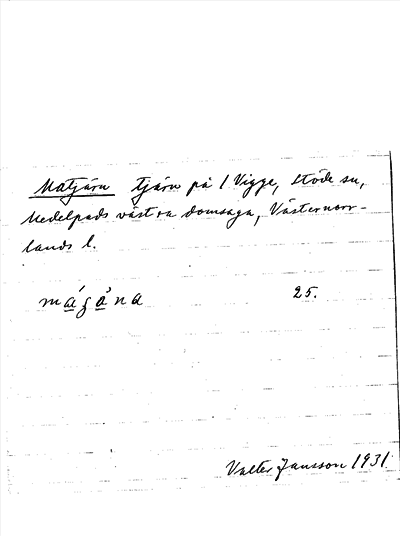 Matjärn tjärn på 1 Vigge, Stöde sn,
Medelpads västra domsaga, Västernorr-
lands l.
25.
Valter Jansson 1931